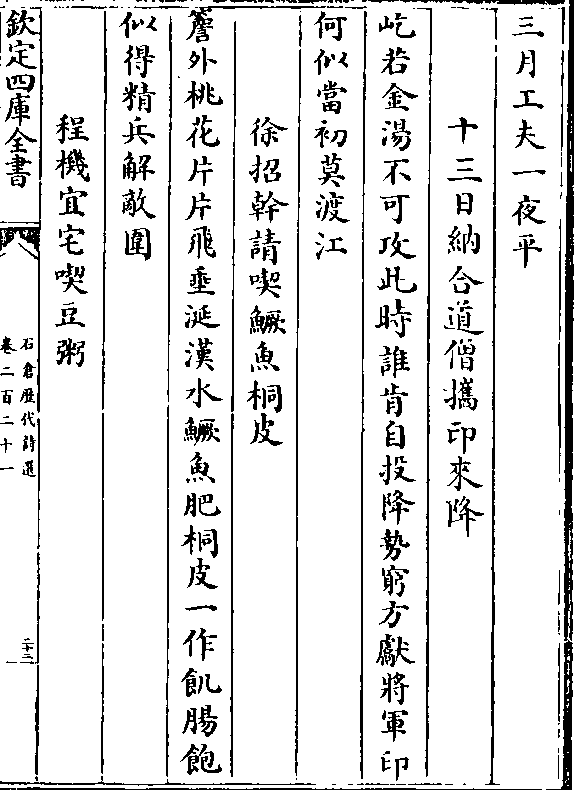 三月工夫一夜平
十三日納合道僧攜印來降
屹若金湯不可攻此時誰肯自投降勢窮方獻將軍印
何似當初莫渡江
徐招幹請喫鱖魚桐皮
簷外桃花片片飛垂涎漢水鱖魚肥桐皮一作飢腸飽
似得精兵解敵圍
程機宜宅喫豆粥
欽定四庫全書
石倉歷代詩選
卷二百二十一
二十二